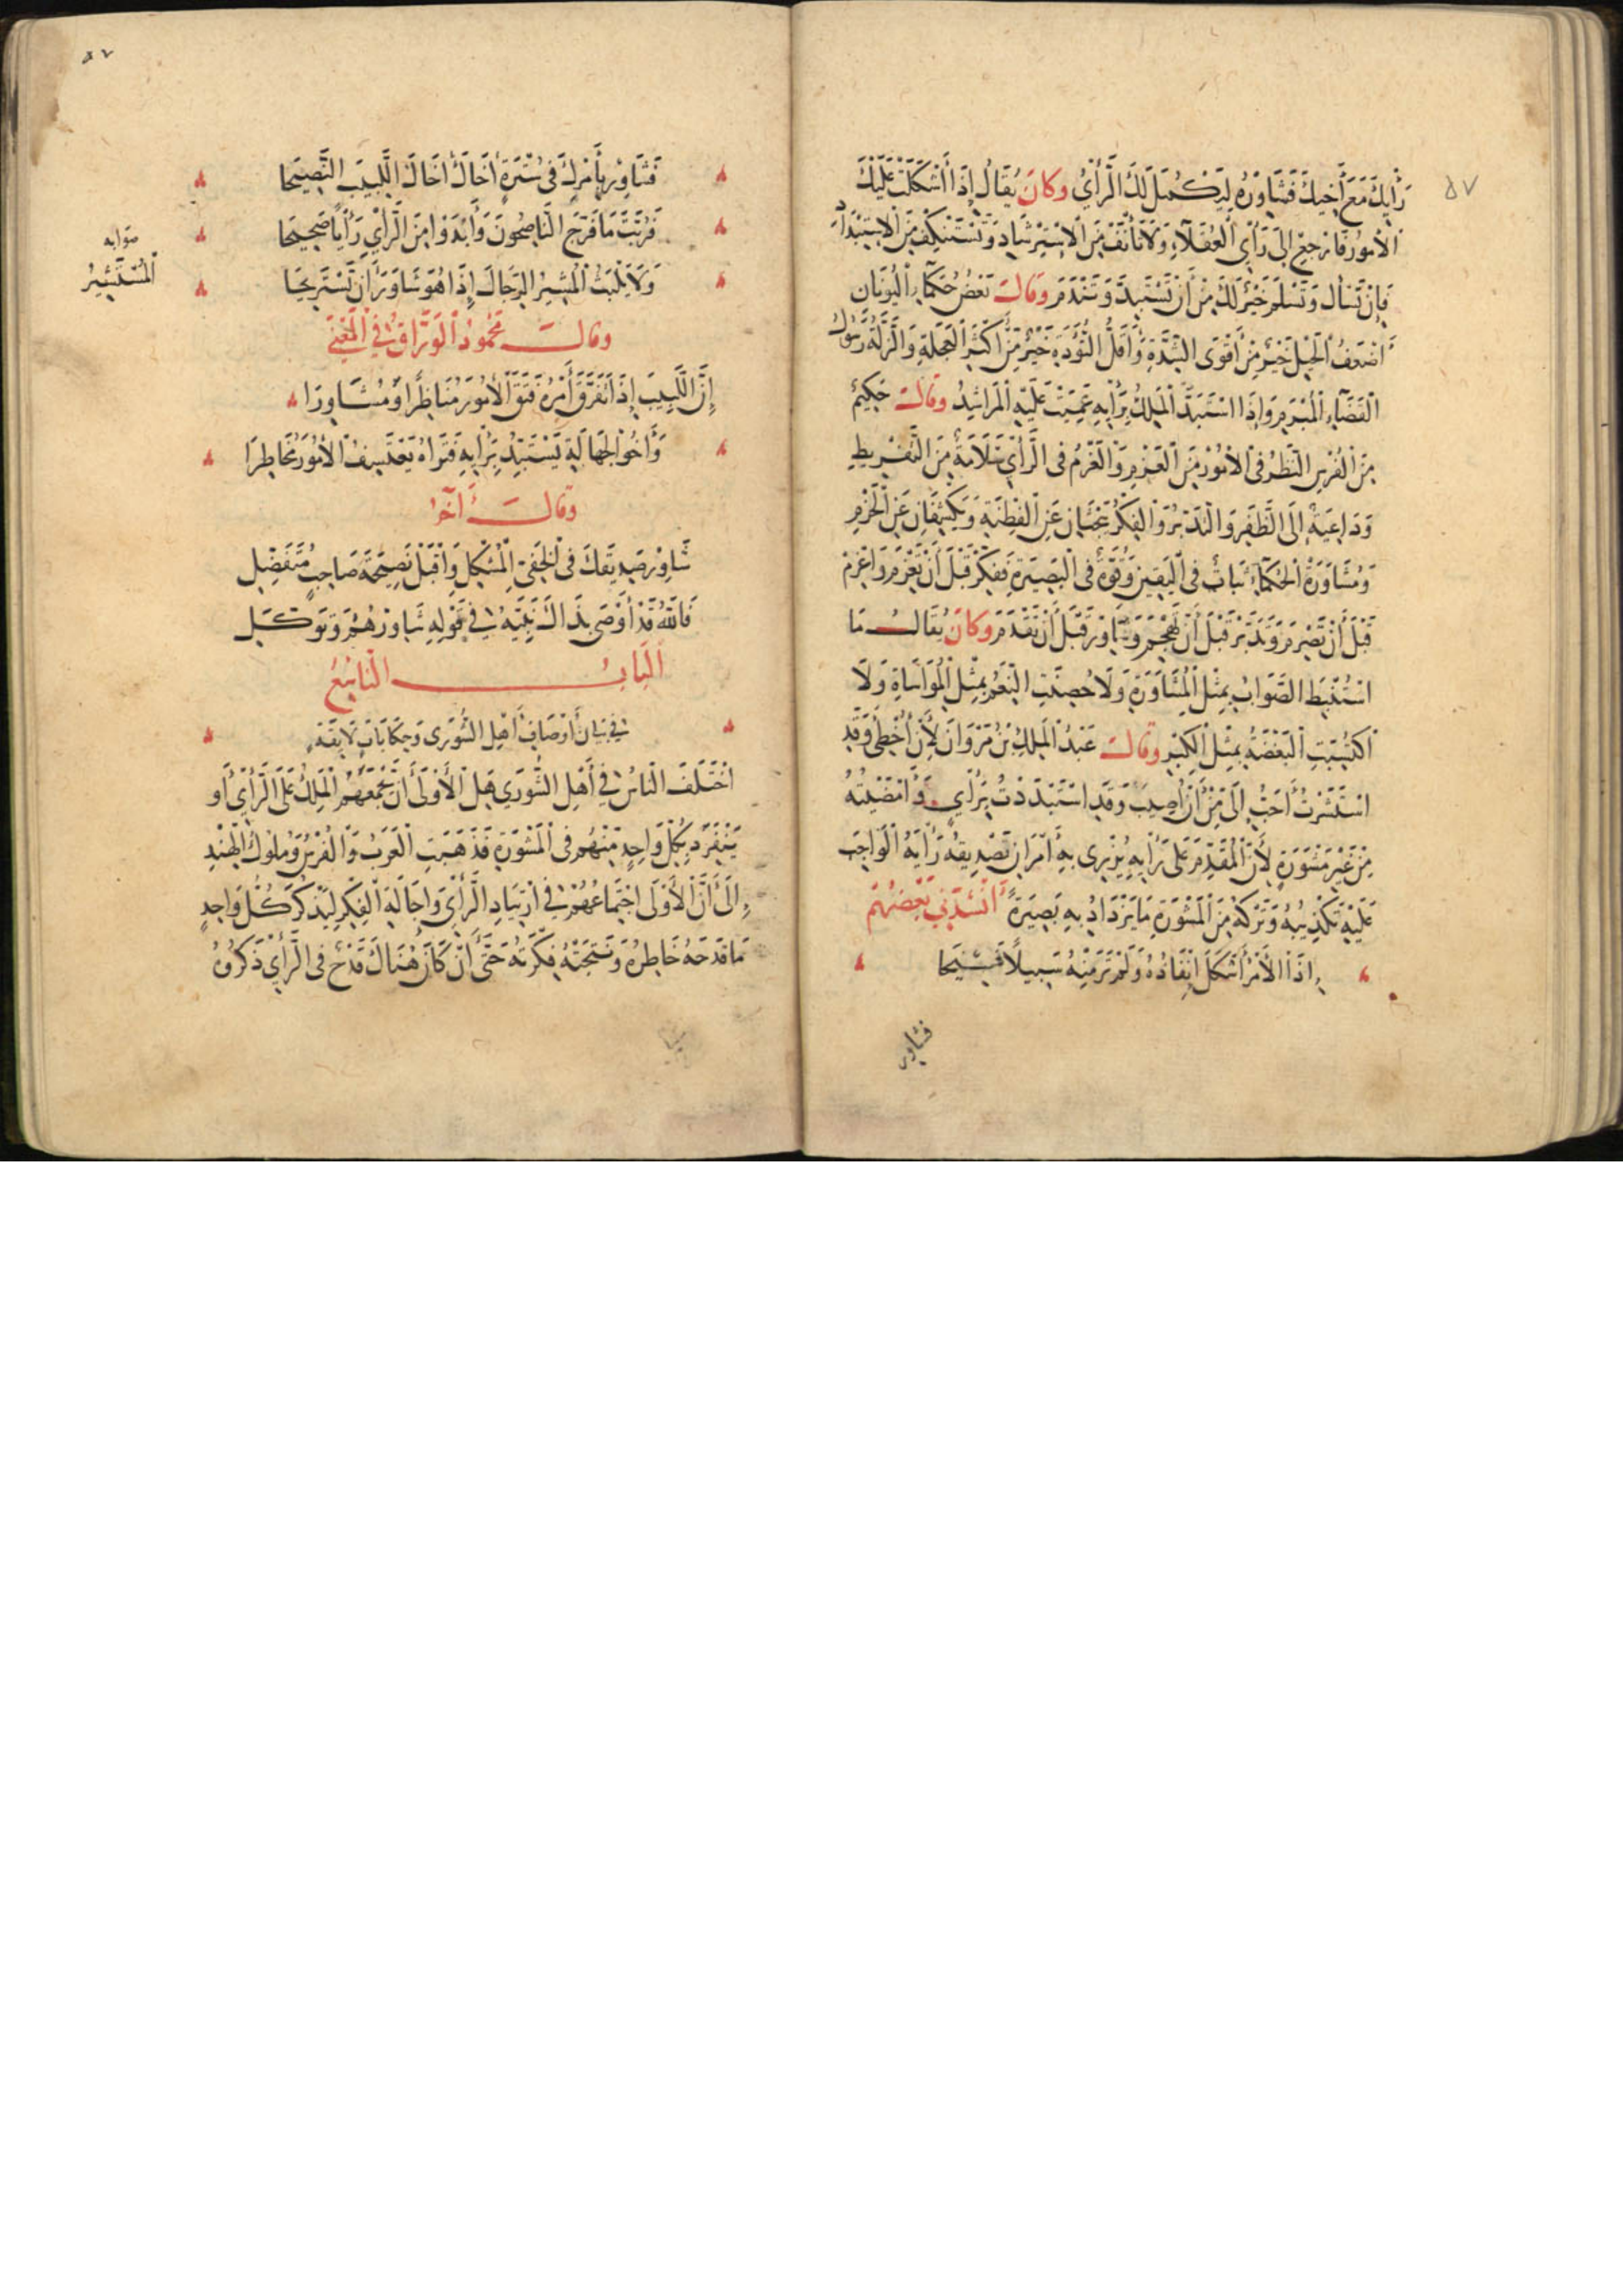 ٥٧
رَأْيِكَ مَعَ أَخِيكَ فَشَاوِرْهُ لِيَكْمُلَ لَكَ الرَّأْيُ وكانَ يُقَالُ إِذَا أَشْكَلَتْ عَلَيْكَ
الْأُمُورُ فَارْجِعْ إِلَى رَأْيِ الْعُقَلَاءِ وَلَا تَأْنَفْ مِنَ الْاِسْتِرْشَادِ وَتَسْتَنْكِفْ مِنَ الْاِسْتِبْدَادِ
فَإِنْ تَسْأَلْ وَتَسْلَمْ خَيْرٌ لَكَ مِنْ أَنْ تَسْتَبِدَّ وَتَنْدَمَ وقالَ بَعْضُ حُكَمَاءِ الْيُونَانِ
أَضْعَفُ الْحِيَلِ خَيْرٌ مِنْ أَقْوَى الشِّدَّةِ وَأَقَلُّ التُّؤَدَةِ خَيْرٌ مِنْ أَكْثَرِ الْعَجَلَةِ وَالزَّلَّةُ رَسُولُ
الْقَضَاءِ الْمُبْرَمِ وَإِذَا اسْتَبَدَّ الْمَلِكُ بِرَأْيِهِ عَمِيَتْ عَلَيْهِ الْمَرَاشِدُ وقالَ حَكِيمٌ
مِنَ الْفُرْسِ النَّظَرُ فِي الْأُمُورِ مِنَ الْعَزْمِ وَالْعَزْمُ فِي الرَّأْيِ سَلَامَةٌ مِنَ التَّفْرِيطِ
وَدَاعِيَةٌ إِلَى الظَّفَرِ وَالتَّدَبُّرُ وَالْفِكْرُ يَبْحَثَانِ عَنِ الْفِطْنَةِ وَيَكْشِفَانِ عَنِ الْحَزْمِ
وَمُشَاوَرَةُ الْحُكَمَاءِ ثَبَاتٌ فِي الْيَقِينِ وَقُوَّةٌ فِي الْبَصِيرَةِ فَفَكِّرْ قَبْلَ أَنْ تَعْزِمَ وَاعْزِمْ
قَبْلَ أَنْ تَصْرِمَ وَتَدَبَّرْ قَبْلَ أَنْ تَهْجُمَ وَشَاوِرْ قَبْلَ أَنْ تَقْدَمَ وكانَ يُقَالُ مَا
اسْتُنْبِطَ الصَّوَابُ بِمِثْلِ الْمُشَاوَرَةِ وَلَا حُصِّنَتِ النِّعَمُ بِمِثْلِ الْمُوَاسَاةِ وَلَا
اكْتُسِبَتِ الْبَغْضَةُ بِمِثْلِ الْكِبْرِ وقالَ عَبْدُ الْمَلِكِ بْنُ مَرْوَانَ لَأَنْ أُخْطِئَ وَقَدِ
اسْتَشَرْتُ أَحَبُّ إِلَيَّ مِنْ أَنْ أُصِيبَ وَقَدِ اسْتَبْدَدْتُ بِرَأْيِي وَأَمْضَيْتُهُ
مِنْ غَيْرِ مَشْوَرَةٍ لِأَنَّ الْمُقْدِمَ عَلَى رَأْيِهِ يُزْرِي بِهِ أَمْرَانِ تَصْدِيقُهُ رَأْيَهُ الْوَاجِبَ
عَلَيْهِ تَكْذِيبُهُ وَتَرْكُهُ مِنَ الْمَشْوَرَةِ مَا يَزْدَادُ بِهِ بَصِيرَةً أَنْشَدَنِي بَعْضُهُمْ
إِذَا الْأَمْرُ أَشْكَلَ إِنْفَاذُهُ وَلَمْ تَرَ مِنْهُ سَبِيلًا فَسِيحًا
فشاور
٥٧
فَشَاوِرْ بِأَمْرِكَ فِي سُتْرَةٍ أَخَاكَ أَخَاكَ اللَّبِيبَ النَّصِيحَا
فَرُبَّتَ مَا فَرَّجَ النَّاصِحُونَ وَأَبْدَوْا مِنَ الرَّأْيِ رَأْيًا صَحِيحَا
صوابه
الْمُسْتَشِيرُ
وَلَا يَلْبَثُ الْمُشِيرُ الرِّجَالَ إِذَا هُوَ شَاوَرَ أَنْ تَسْتَرِيحَا
وقالَ مَحْمُودُ الْوَرَّاقُ فِي الْمَعْنَى
إِنَّ اللَّبِيبَ إِذَا تَفَرَّقَ أَمْرُهُ فَتَقَ الْأُمُورَ مُنَاظِرًا وَمُشَاوِرَا
وَأَخُو الْجَهَالَةِ يَسْتَبِدُّ بِرَأْيِهِ فَتَرَاهُ يَعْتَسِفُ الْأُمُورَ مُخَاطِرَا
وقالَ آخَر
شَاوِرْ صَدِيقَكَ فِي الْخَفِيِّ الْمُشْكِلِ وَاقْبَلْ نَصِيحَةَ صَاحِبٍ مُتَفَضِّلِ
فَاللَّهُ قَدْ أَوْصَى بِذَاكَ نَبِيَّهُ فِي قَوْلِهِ شَاوِرْهُمْ وَتَوَكَّلِ
اَلْبَابُ التَّاسِعُ
فِي بَيَانِ أَوْصَافِ أَهْلِ الشُّورَى وَحِكَايَاتٍ لَايِقَةٍ
اخْتَلَفَ النَّاسُ فِي أَهْلِ الشُّورَى هَلِ الْأَوْلَى أَنْ يَجْمَعَهُمُ الْمَلِكُ عَلَى الرَّأْيِ أَوْ
يَنْفَرِدَ بِكُلِّ وَاحِدٍ مِنْهُمْ فِي الْمَشْوَرَةِ فَذَهَبَتِ الْعَرَبُ وَالْفُرْسُ وَمُلُوكُ الْهِنْدِ
إِلَى أَنَّ الْأَوْلَى اجْتِمَاعُهُمْ فِي ارْتِيَادِ الرَّأْيِ وَإِجَالَةِ الْفِكْرِ لِيَذْكُرَ كُلُّ وَاحِدٍ
مَا قَدَحَهُ خَاطِرُهُ وَنَتَجَتْهُ فِكْرَتُهُ حَتَّى إِنْ كَانَ هُنَاكَ قَدْحٌ فِي الرَّأْيِ ذَكَرُوهُ